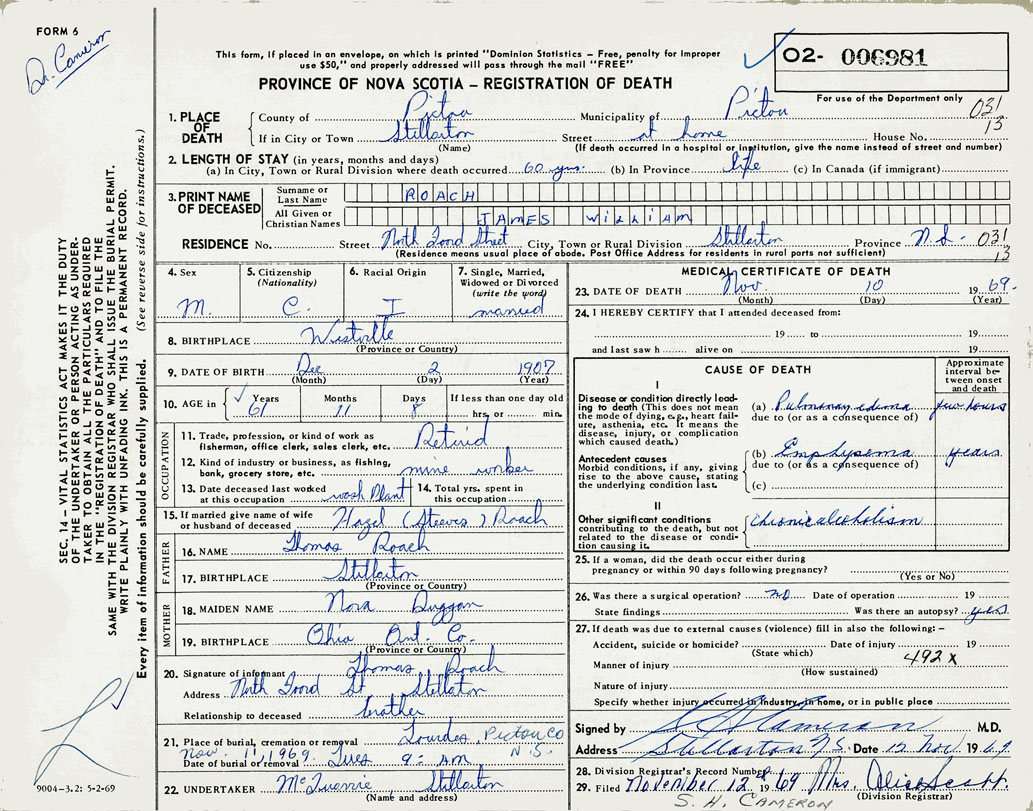 FORM 6
Dr. Cameron
This form, if placed in an envelope, on which is printed "Dominion Statistics - Free, penalty for Improper
use $50," and properly addressed will pass through the mail "FREE"
O2- 006981
PROVINCE OF NOVA SCOTIA - REGISTRATION OF DEATH
For use of the Department only
1. PLACE OF DEATH
County of Pictou Municipality of Pictou 031
If in City or Town Stellarton Street at home House No. 13
(Name) (If death occurred in a hospital or institution, give the name instead of street and number)
2. LENGTH OF STAY (in years, months and days)
(a) In City, Town or Rural Division where death occurred 60 yrs. (b) In Province life (c) In Canada (if immigrant)
3. PRINT NAME OF DECEASED
Surname or Last Name ROACH
All Given or Christian Names JAMES WILLIAM
RESIDENCE No. Street North Foord Street City, Town or Rural Division Stellarton Province N.S. 031
(Residence means usual place of abode. Post Office Address for residents in rural parts not sufficient) 13
4. Sex M.
5. Citizenship (Nationality) C.
6. Racial Origin I
7. Single, Married, Widowed or Divorced (write the word) married
8. BIRTHPLACE Westville
(Province or Country)
9. DATE OF BIRTH Dec 2 1907
(Month) (Day) (Year)
10. AGE in Years 61 Months 11 Days 8 If less than one day old hrs. or min.
OCCUPATION
11. Trade, profession, or kind of work as fisherman, office clerk, sales clerk, etc. Retired
12. Kind of industry or business, as fishing, bank, grocery store, etc. mine worker
13. Date deceased last worked at this occupation wash Plant 14. Total yrs. spent in this occupation
15. If married give name of wife or husband of deceased Hazel (Steeves) Roach
FATHER
16. NAME Thomas Roach
17. BIRTHPLACE Stellarton
(Province or Country)
MOTHER
18. MAIDEN NAME Nora Duggan
19. BIRTHPLACE Ohio Ant. Co.
(Province or Country)
20. Signature of informant Thomas Roach
Address North Foord St Stellarton
Relationship to deceased brother
21. Place of burial, cremation or removal Lourdes Pictou Co N.S.
Date of burial or removal Nov. 11, 1969. Tues 9: AM
22. UNDERTAKER Stellarton
(Name and address)
MEDICAL CERTIFICATE OF DEATH
23. DATE OF DEATH Nov. 10 1969.
(Month) (Day) (Year)
24. I HEREBY CERTIFY that I attended deceased from:
19 to 19
and last saw h alive on 19
CAUSE OF DEATH
Approximate interval between onset and death
I
Disease or condition directly leading to death (This does not mean the mode of dying, e.g., heart failure, asthenia, etc. It means the disease, injury, or complication which caused death.)
(a) Pulmonary edema few hours
due to (or as a consequence of)
Antecedent causes
Morbid conditions, if any, giving rise to the above cause, stating the underlying condition last.
(b) Emphysema years
due to (or as a consequence of)
(c)
II
Other significant conditions contributing to the death, but not related to the disease or condition causing it.
chronic alcoholism
25. If a woman, did the death occur either during pregnancy or within 90 days following pregnancy?
(Yes or No)
26. Was there a surgical operation? no Date of operation 19
State findings Was there an autopsy? yes
27. If death was due to external causes (violence) fill in also the following: -
Accident, suicide or homicide? Date of injury 19
(State which) 492 X
Manner of injury
(How sustained)
Nature of injury
Specify whether injury occurred in industry, in home, or in public place
Signed by S H Cameron M.D.
Address Stellarton N.S. Date 12 Nov. 1969.
28. Division Registrar's Record Number
29. Filed November 12th 1969 Mrs. Alice Scott.
(Division Registrar)
S. H. CAMERON
SEC. 14 - VITAL STATISTICS ACT MAKES IT THE DUTY
OF THE UNDERTAKER OR PERSON ACTING AS UNDER-
TAKER TO OBTAIN ALL THE PARTICULARS REQUIRED
IN THE "REGISTRATION OF DEATH" AND TO FILE THE
SAME WITH THE DIVISION REGISTRAR WHO SHALL ISSUE THE BURIAL PERMIT.
WRITE PLAINLY WITH UNFADING INK. THIS IS A PERMANENT RECORD.
Every item of information should be carefully supplied. (See reverse side for instructions.)
9004-3.2: 5-2-69